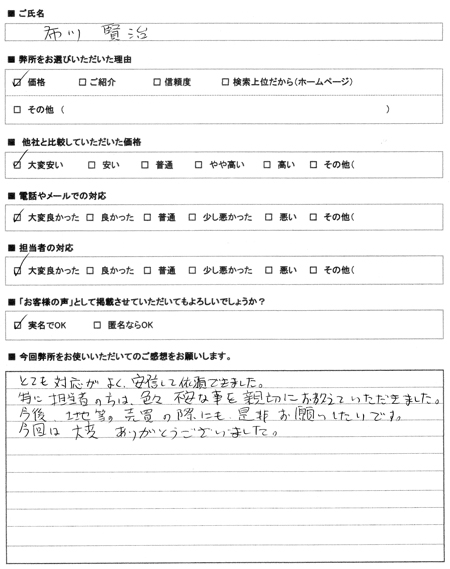 ■ ご氏名
市川 賢治
■ 弊所をお選びいただいた理由
☑ 価格 □ ご紹介 □ 信頼度 □ 検索上位だから(ホームページ)
□ その他 ( )
■ 他社と比較していただいた価格
☑ 大変安い □ 安い □ 普通 □ やや高い □ 高い □ その他(
■ 電話やメールでの対応
☑ 大変良かった □ 良かった □ 普通 □ 少し悪かった □ 悪い □ その他(
■ 担当者の対応
☑ 大変良かった □ 良かった □ 普通 □ 少し悪かった □ 悪い □ その他(
■「お客様の声」として掲載させていただいてもよろしいでしょうか?
☑ 実名でOK □ 匿名ならOK
■ 今回弊所をお使いいただいてのご感想をお願いします。
とても対応がよく、安信して依頼できました。
特に担当者の方は、色々な事を親切にお教えていただきました。
今後 土地等の売買の際にも是非お願いしたいです。
今回は大変 ありがとうございました。